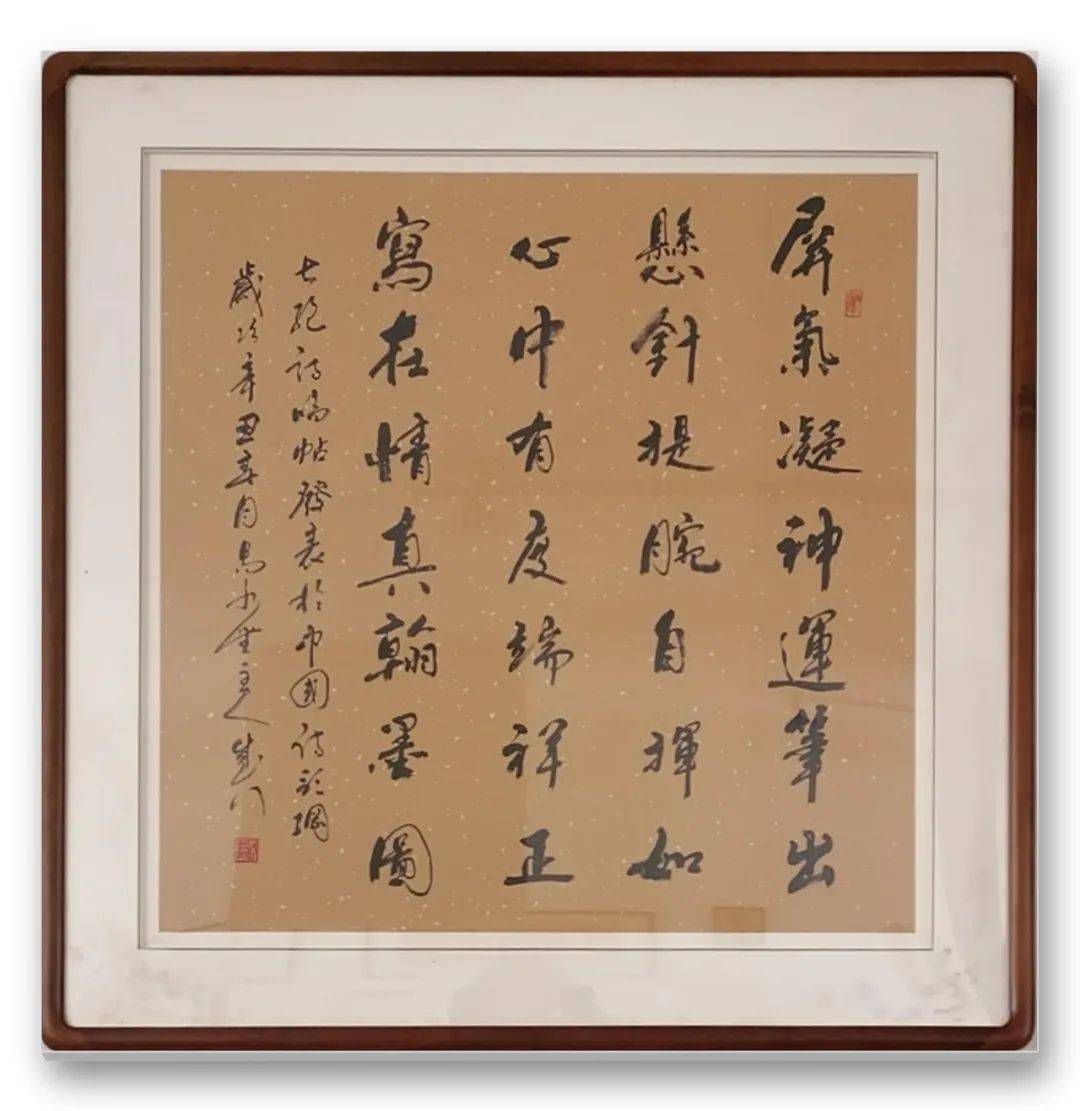 屏氣凝神運筆出
懸針提腕自揮如
心中有度端祥正
寫在情真翰墨圖
七絕詩臨帖發表於中國詩歌網
歲次辛丑春月 主人